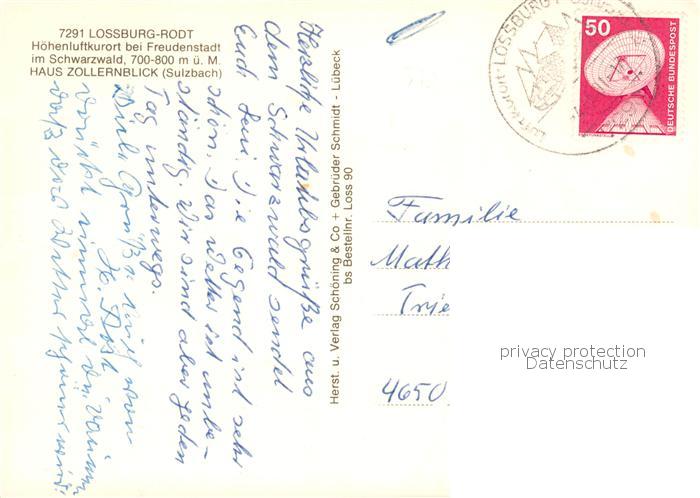 7291 LOSSBURG-RODT
Höhenluftkurort bei Freudenstadt
im Schwarzwald, 700-800 m ü. M.
HAUS ZOLLERNBLICK (Sulzbach)
Herzliche Urlaubsgrüße aus
dem Schwarzwald sendet
Euch Die Gegend ist sehr
schön. Das Wetter ist unbe-
ständig. Wir sind aber jeden
Tag unterwegs.
Viele Grüße auch von
H.
daß das Wetter schöner wird!
Herst. u. Verlag Schöning & Co + Gebrüder Schmidt - Lübeck
bs Bestellnr. Loss 90
LOSSBURG
Luftkurort
50
DEUTSCHE BUNDESPOST
Familie
Math
Trie
4650
privacy protection
Datenschutz